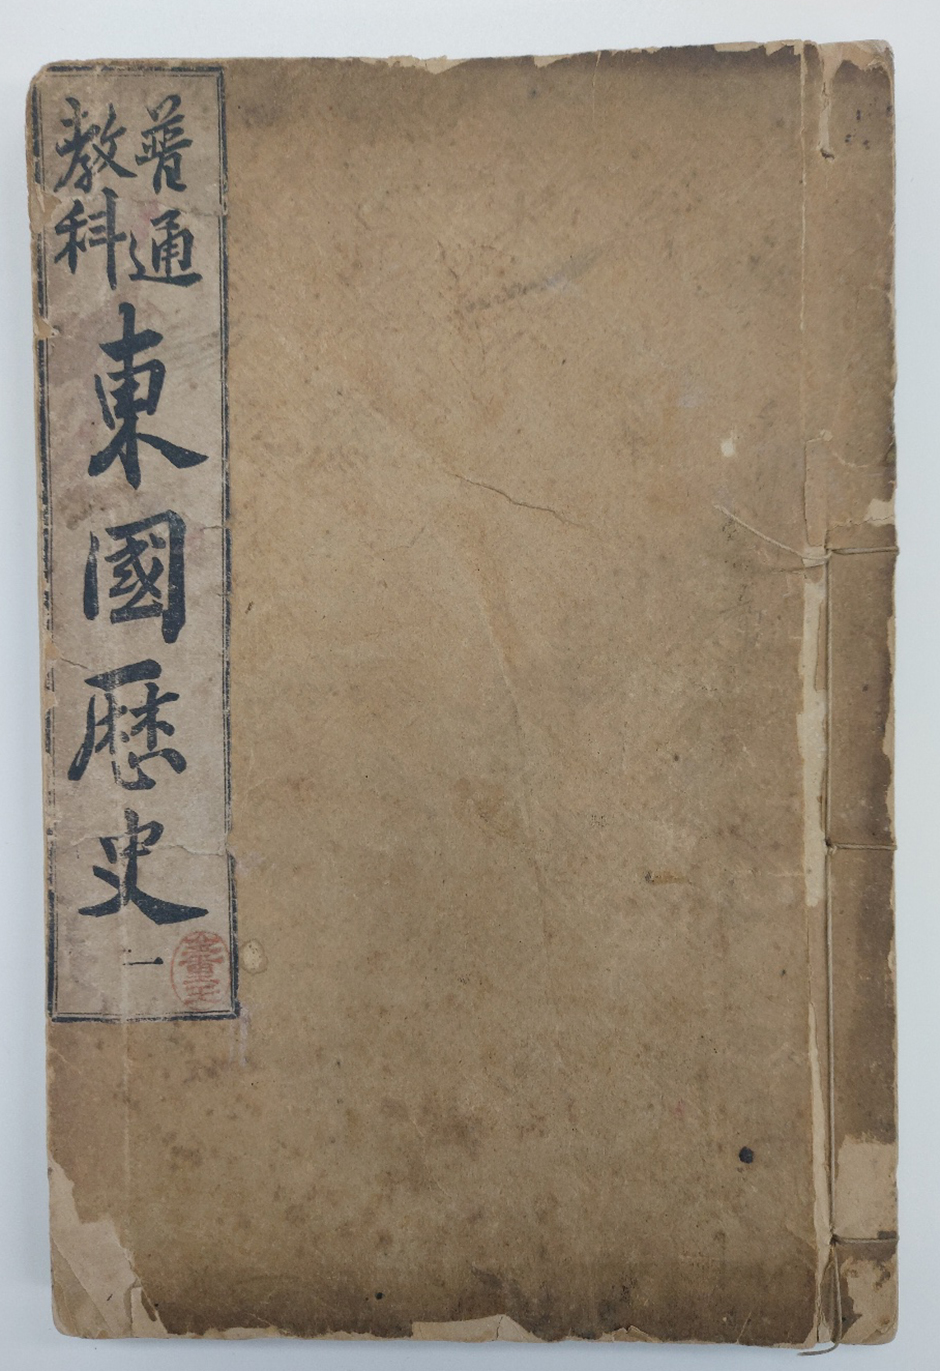 普通
教科
東國歷史
一